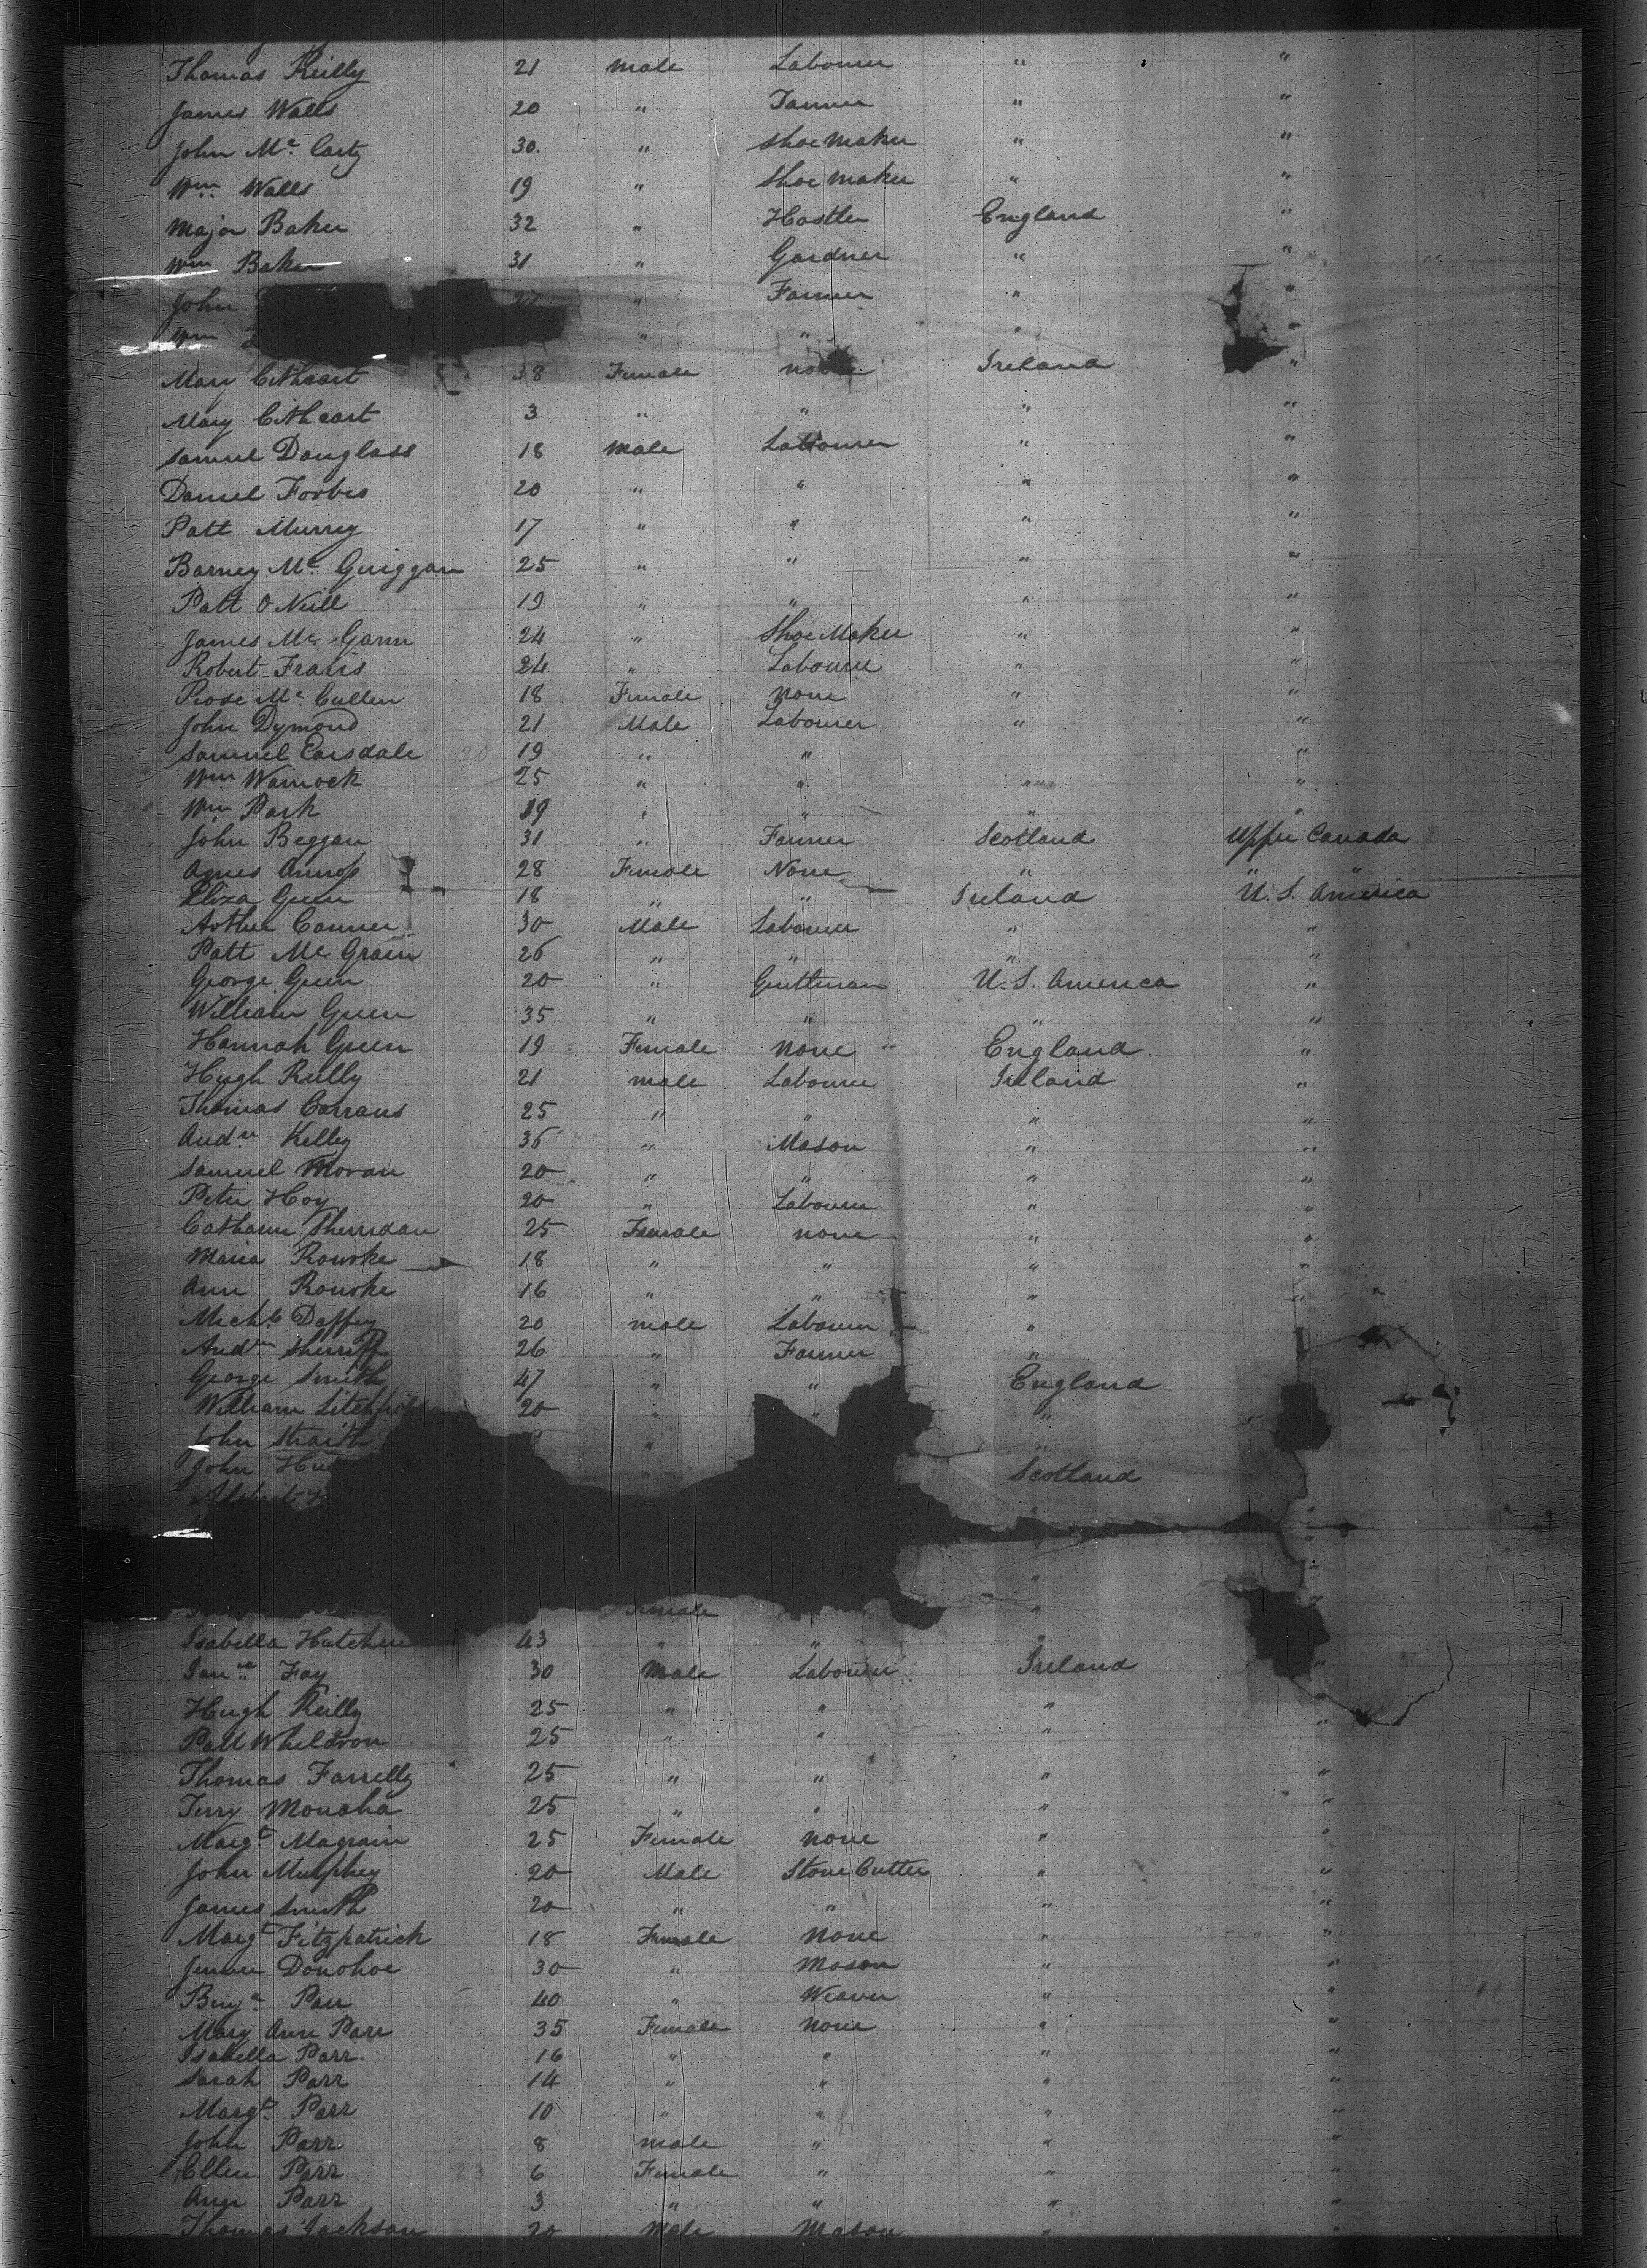 Thomas Reilly 21 male Labourer " "
James Walls 20 " Farmer " "
John Mc Carty 30. " Shoe maker " "
Wm Walls 19 " Shoe maker " "
Major Baker 32 " Hostler England "
Wm Baker 31 " Gardner " "
John 27 " Farmer " "
Wm " " " "
Mary Cithcart 38 Female none Ireland "
Mary Cithcart 3 " " " "
Samuel Douglass 18 male Labourer " "
Daniel Forbes 20 " " " "
Patt Murrey 17 " " " "
Barney Mc Guiggan 25 " " " "
Patt O Neill 19 " " " "
James Mc Gann 24 " Shoe Maker " "
Robert Fravis 24 " Labourer " "
Rose Mc Cullen 18 Female none " "
John Dymond 21 Male Labourer " "
Samuel Earsdale 19 " " "
Wm Warnock 25 " " " "
Wm Park 19 " " " "
John Beggan 31 " Farmer Scotland Upper Canada
Agnes 28 Female None " "
Eliza Green 18 " " Ireland U.S. America
Arther Conner 30 Male Labourer " "
Patt Mc Grain 26 " " " "
George Green 20 " Gentleman U.S. America "
William Green 35 " " " "
Hannah Green 19 Female none England "
Hugh Reilly 21 male Labourer Ireland "
Thomas Carraus 25 " " " "
Andw Kelley 36 " Mason " "
Samuel Moran 20 " " " "
Peter Hoy 20 " Labourer " "
Catharin Sherridan 25 Female none " "
Maria Rourke 18 " " " "
Ann Rourke 16 " " " "
Michl Daffey 20 male Labourer " "
Andw Sherriff 26 " Farmer "
George Smith 47 " " England
William 20 " " "
John Straith " "
John " Scotland
"
" "
" "
Female "
Isabella 43 " " "
Fay 30 Male Labourer Ireland "
Hugh Reilly 25 " " " "
Patt Wheldron 25 " " " "
Thomas Farrelly 25 " " " "
Terry Monaha 25 " " " "
Margt Magrain 25 Female none " "
John Murphey 20 Male Stone Cutter " "
James Smith 20 " " " "
Margt Fitzpatrick 18 Female None " "
Donohoe 30 " Mason " "
Parr 40 " Weaver " "
Mary Ann Parr 35 Female none " "
Isabella Parr 16 " " " "
Sarah Parr 14 " " " "
Margt Parr 10 " " " "
John Parr 8 male " " "
Ellen Parr 6 Female " " "
Parr 3 " " " "
Thomas Jackson 20 Male Mason " "